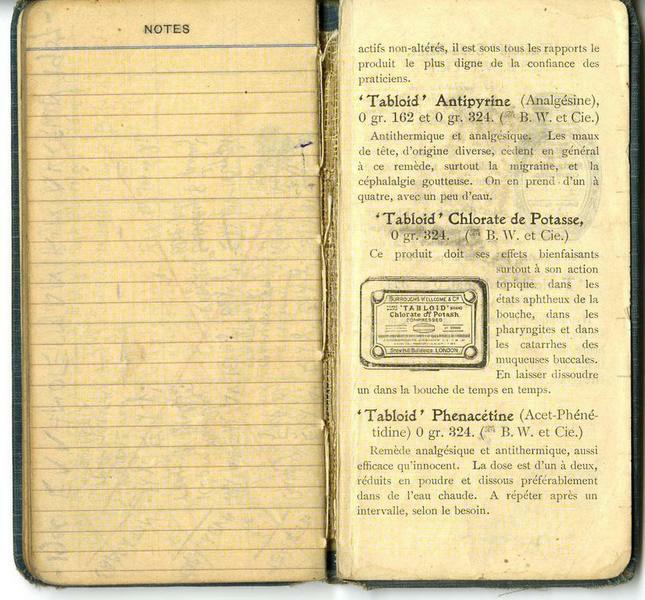 NOTES
actifs non-altérés, il est sous tous les rapports le
produit le plus digne de la confiance des
praticiens.
'Tabloid' Antipyrine (Analgésine),
0 gr. 162 et 0 gr. 324. (B. W. et Cie.)
Antithermique et analgésique. Les maux
de tête, d'origine diverse, cèdent en général
à ce remède, surtout la migraine, et la
céphalalgie goutteuse. On en prend d'un à
quatre, avec un peu d'eau.
'Tabloid' Chlorate de Potasse,
0 gr. 324. (B. W. et Cie.)
Ce produit doit ses effets bienfaisants
surtout à son action
topique dans les
états aphtheux de la
bouche, dans les
pharyngites et dans
les catarrhes des
muqueuses buccales.
En laisser dissoudre
un dans la bouche de temps en temps.
BURROUGHS WELLCOME & Co.
'TABLOID' BRAND
Chlorate of Potash
COMPRESSED
Snow Hill Buildings LONDON
'Tabloid' Phenacétine (Acet-Phéné-
tidine) 0 gr. 324. (B. W. et Cie.)
Remède analgésique et antithermique, aussi
efficace qu'innocent. La dose est d'un à deux,
réduits en poudre et dissous préférablement
dans de l'eau chaude. A répéter après un
intervalle, selon le besoin.